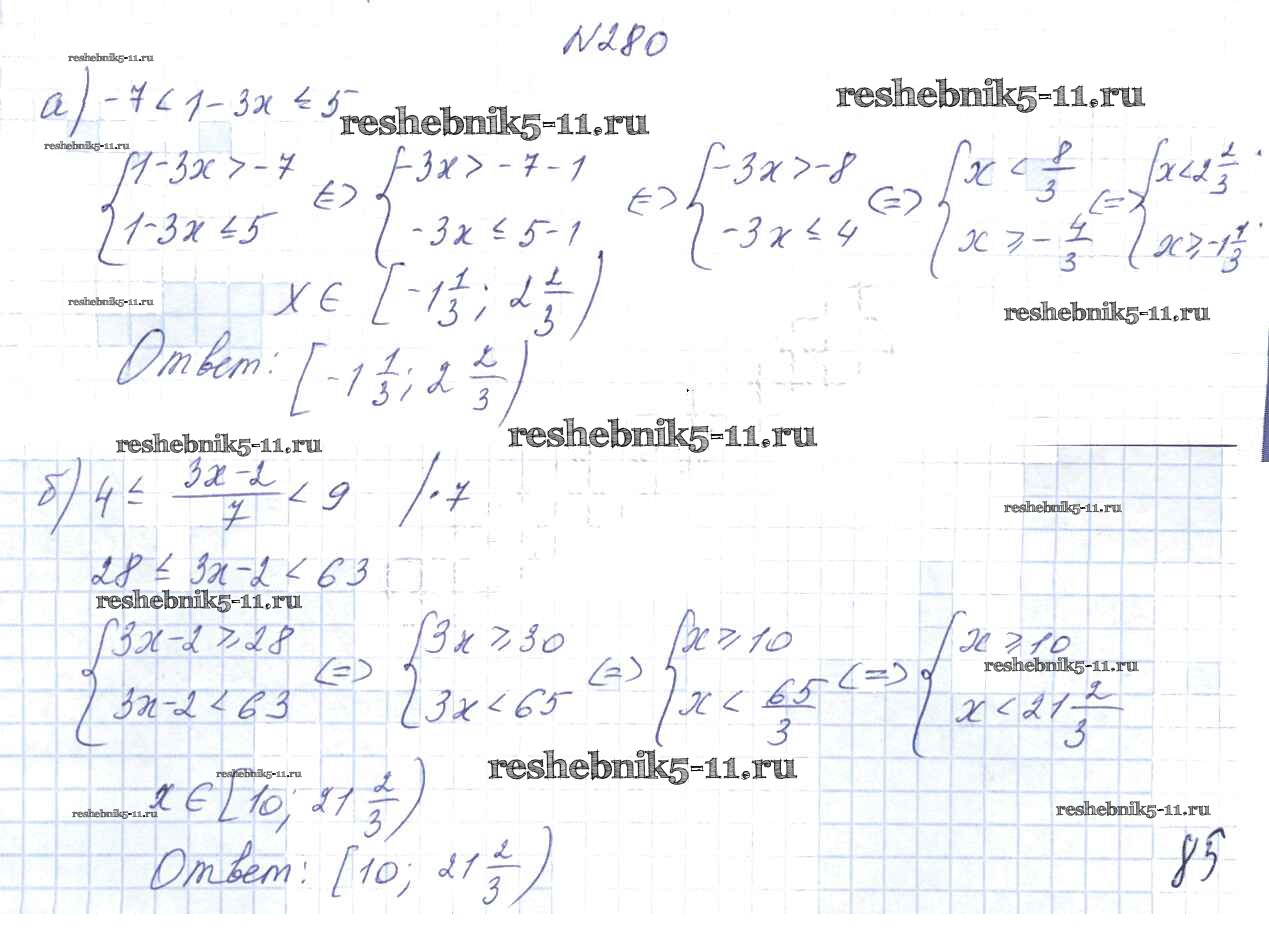 №280
reshebnik5-11.ru
а) -7 < 1 - 3x ≤ 5
reshebnik5-11.ru
reshebnik5-11.ru
reshebnik5-11.ru
{1-3x > -7 <=> {-3x > -7-1 <=> {-3x > -8 <=> {x < 8/3 <=> {x < 2 2/3
{1-3x ≤ 5 {-3x ≤ 5-1 {-3x ≤ 4 {x ≥ -4/3 {x ≥ -1 1/3
reshebnik5-11.ru
x ∈ [-1 1/3; 2 2/3)
reshebnik5-11.ru
Ответ: [-1 1/3; 2 2/3)
reshebnik5-11.ru
reshebnik5-11.ru
б) 4 ≤ (3x-2)/7 < 9 /·7
reshebnik5-11.ru
28 ≤ 3x-2 < 63
reshebnik5-11.ru
{3x-2 ≥ 28 <=> {3x ≥ 30 <=> {x ≥ 10 <=> {x ≥ 10
reshebnik5-11.ru
{3x-2 < 63 {3x < 65 {x < 65/3 {x < 21 2/3
reshebnik5-11.ru
reshebnik5-11.ru
x ∈ [10; 21 2/3)
reshebnik5-11.ru
reshebnik5-11.ru
Ответ: [10; 21 2/3)
85